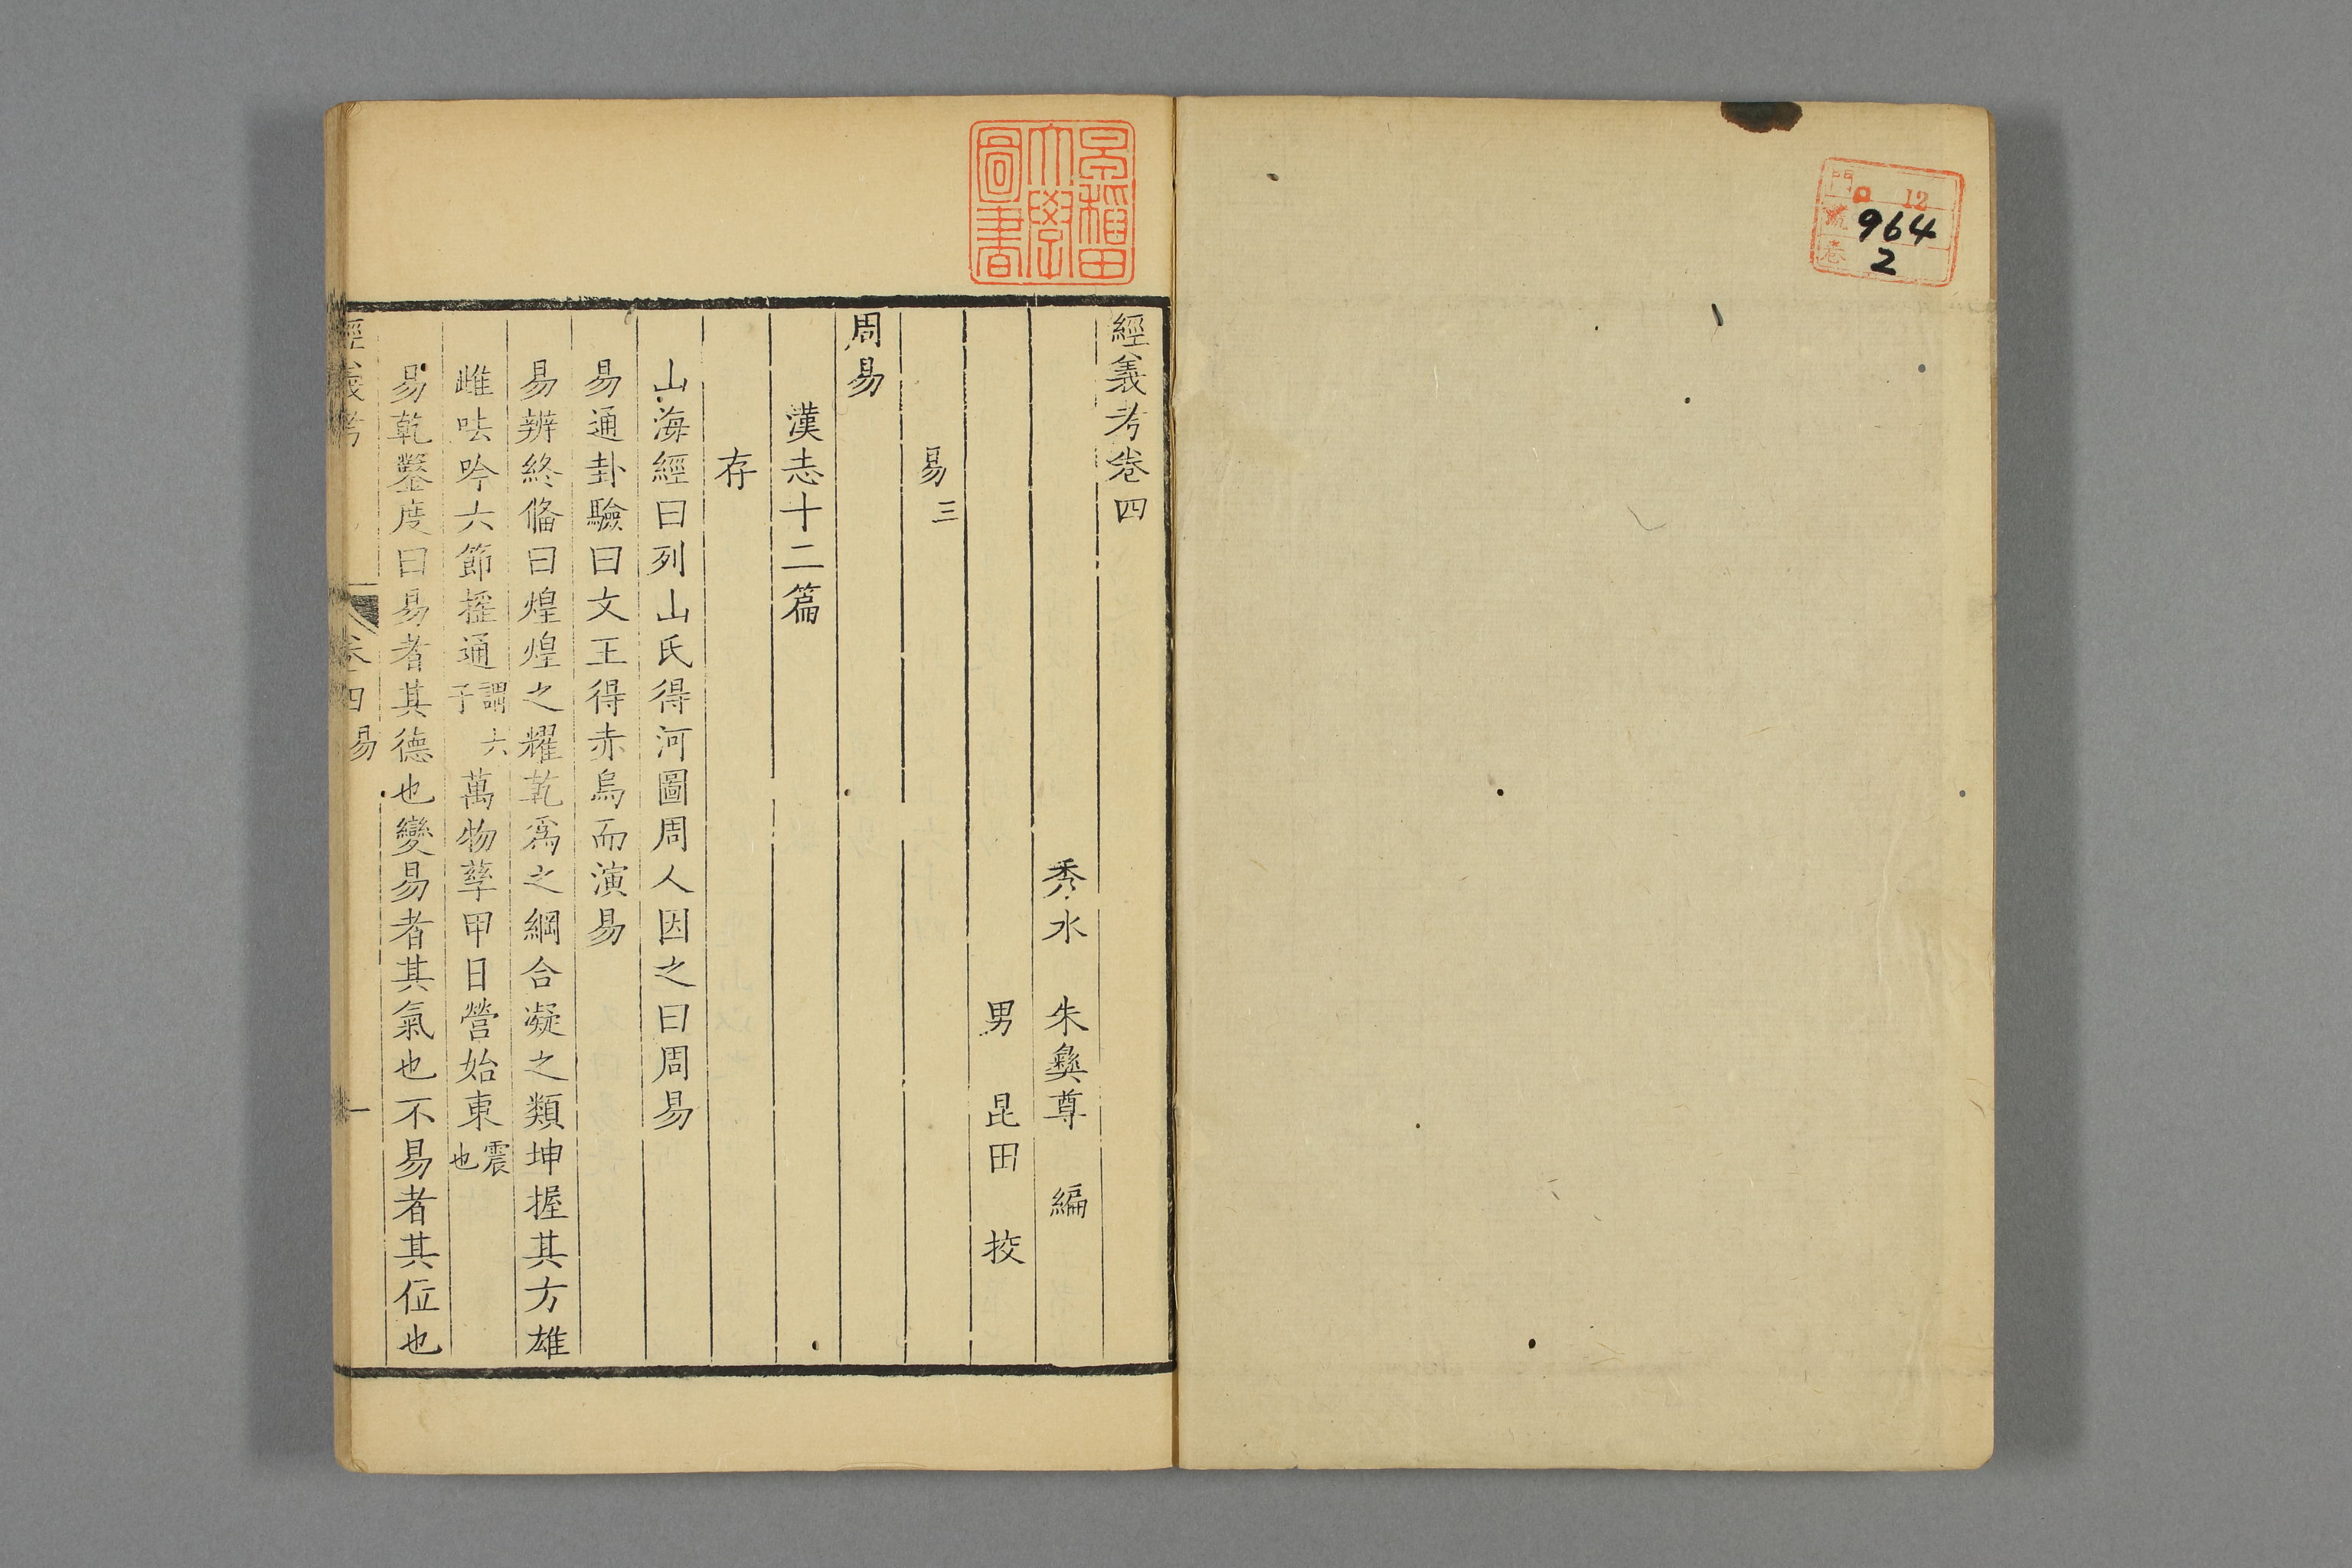 門 ロ 12
號 964
卷 2
早稲田大學圖書
經義考卷四
秀水 朱彝尊 編
男 昆田 挍
易三
周易
漢志十二篇
存
山海經曰列山氏得河圖周人因之曰周易
易通卦驗曰文王得赤烏而演易
易辨終俻曰煌煌之耀乾爲之綱合凝之類坤握其方雄
雌呿吟六節搖通謂六子萬物孳甲日營始東震也
易乾鑿度曰易者其德也變易者其氣也不易者其位也
經義考 卷四 易 一